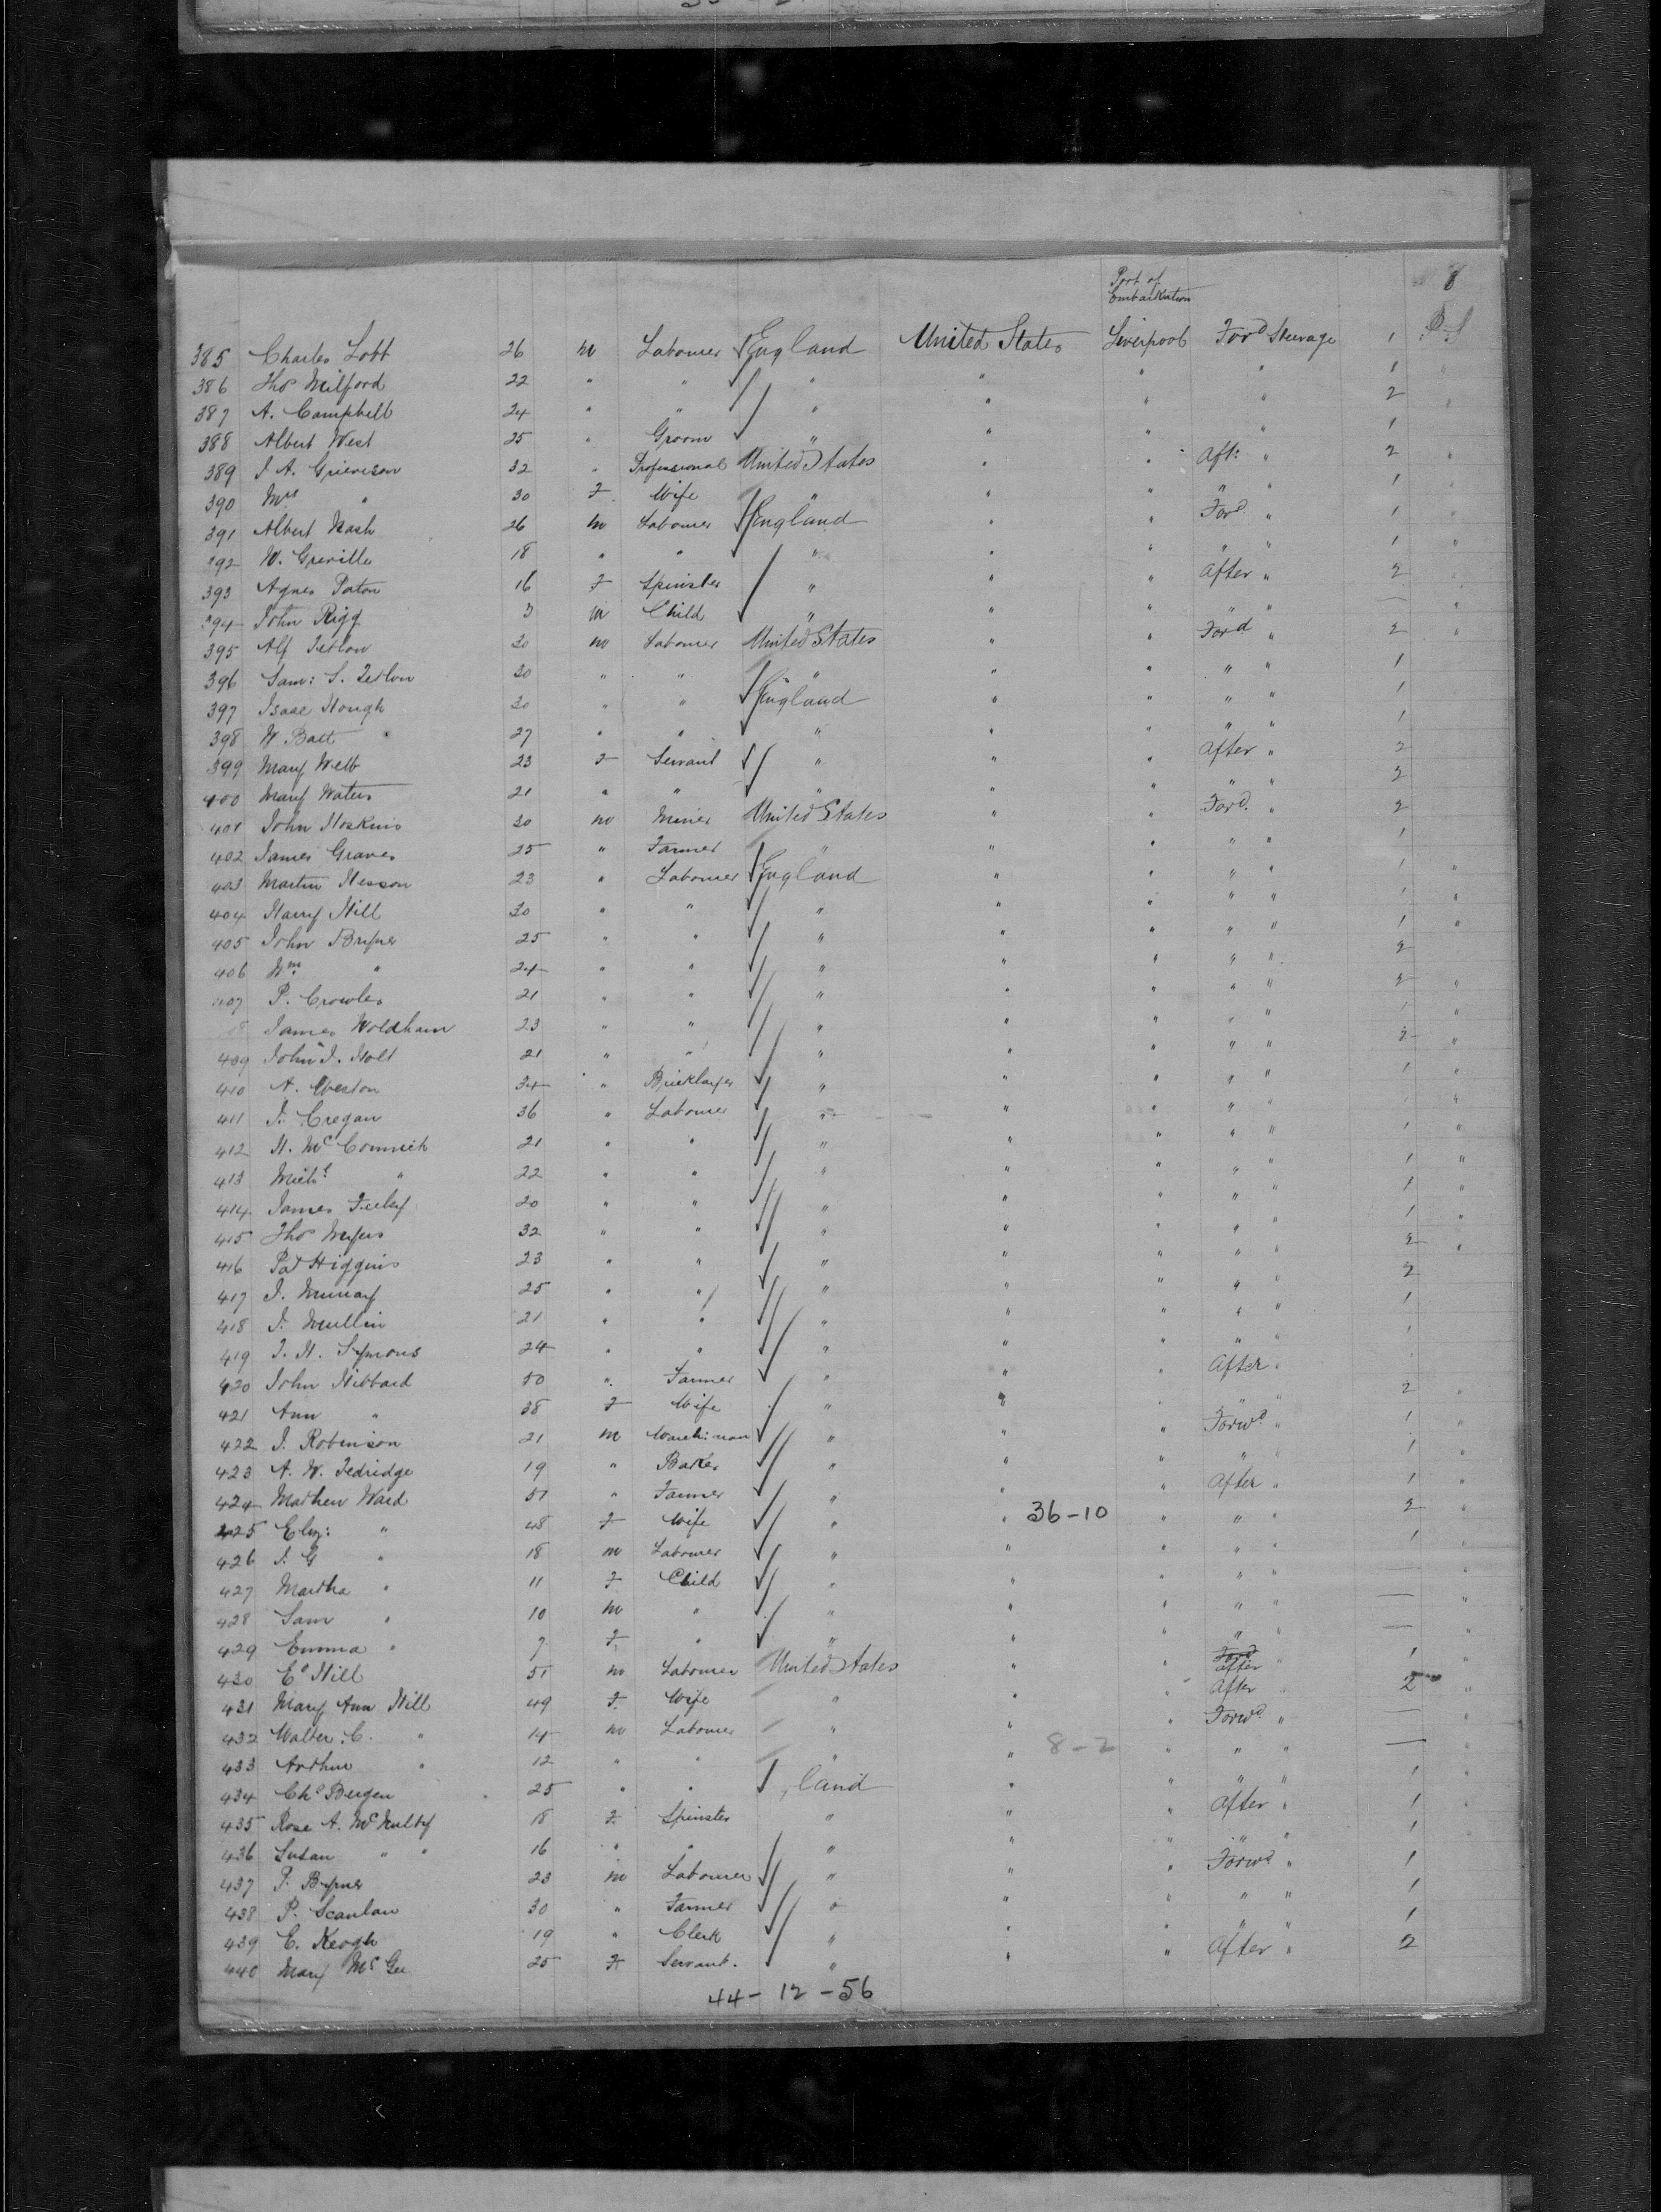 Port of
Embarkation
8
385 Charles Lobb 26 m Labourer England United States Liverpool Ford Steerage 1
386 Thos Milford 22 " " " " " " 1
387 A. Campbell 24 " " " " " " 2
388 Albert West 25 " Groom " " " " 1
389 J. A. Grierison 32 " Professional United States " " Aft: " 2
390 Mrs " 30 F Wife " " " " " 1
391 Albert Nash 26 m Labourer England " " Ford " 1
392 W. Greville 18 " " " " " " " 1
393 Agnes Paton 16 F Spinster " " " After " 2
394 John Rigg 3 m Child " " " " " —
395 Alf Tetlow 30 m Labourer United States " " Ford " 2
396 Sam: S. Tetlow 30 " " " " " " " 1
397 Isaac Hough 30 " " England " " " " 1
398 W Batt 27 " " " " " " " 1
399 Mary Webb 23 F Servant " " " After " 2
400 Mary Waters 21 " " " " " " " 2
401 John Hoskins 30 m Miner United States " " Ford " 2
402 James Graves 25 " Farmer " " " " " 1
403 Martin Hesson 23 " Labourer England " " " " 1 "
404 Harry Hill 30 " " " " " " " 1 "
405 John Bryner 25 " " " " " " " 1 "
406 Wm " 24 " " " " " " " 2
407 P. Crowley 21 " " " " " " " 2 "
8 James Woldham 23 " " " " " " " 1 "
409 John J. Holt 21 " " " " " " " 2 "
410 A. Weston 34 " Bricklayer " " " " " 1 "
411 J. Cregan 36 " Labourer " " " " " "
412 H. McCormick 21 " " " " " " " 1 "
413 Michl " 22 " " " " " " " 1 "
414 James Feeley 20 " " " " " " " 1 "
415 Thos Myers 32 " " " " " " " 1 "
416 Pat Higgins 23 " " " " " " " 2 "
417 J. Murray 25 " " " " " " " 2
418 J. Mullin 21 " " " " " " " 1
419 J. H. Symons 24 " " " " " " " 1
420 John Hibbard 50 " Farmer " " " After "
421 Ann " 38 F Wife " " " " " 2 "
422 J. Robinson 21 m Wareh:man " " " Forwd " 1 "
423 A. W. Tedridge 19 " Baker " " " " " 1 "
424 Mathew Ward 51 " Farmer " " " After " 1 "
425 Eliz: " 48 F Wife " " 36-10 " " " 2 "
426 J. G " 18 m Labourer " " " " " 1 "
427 Martha " 11 F Child " " " " " — "
428 Sam " 10 m " " " " " " — "
429 Emma " 7 F " " " " " " — "
430 Ed Hill 51 m Labourer United States " " Ford after " 1 "
431 Mary Ann Hill 49 F Wife " " " After " 2 "
432 Walter C. " 14 m Labourer " " " Forwd " — "
433 Arthur " 12 " " " " 8-2 " " " — "
434 Chs Bergen 25 " " land " " " " 1 "
435 Rose A. McNulty 18 F Spinster " " " After " 1 "
436 Susan " " 16 " " " " " " " 1
437 P. Bryner 23 m Labourer " " " Forwd " 1
438 P. Scanlan 30 " Farmer " " " " " 1
439 C. Keogh 19 " Clerk " " " " " 1
440 Mary McGee 25 F Servant " " " After " 2
44 - 12 - 56